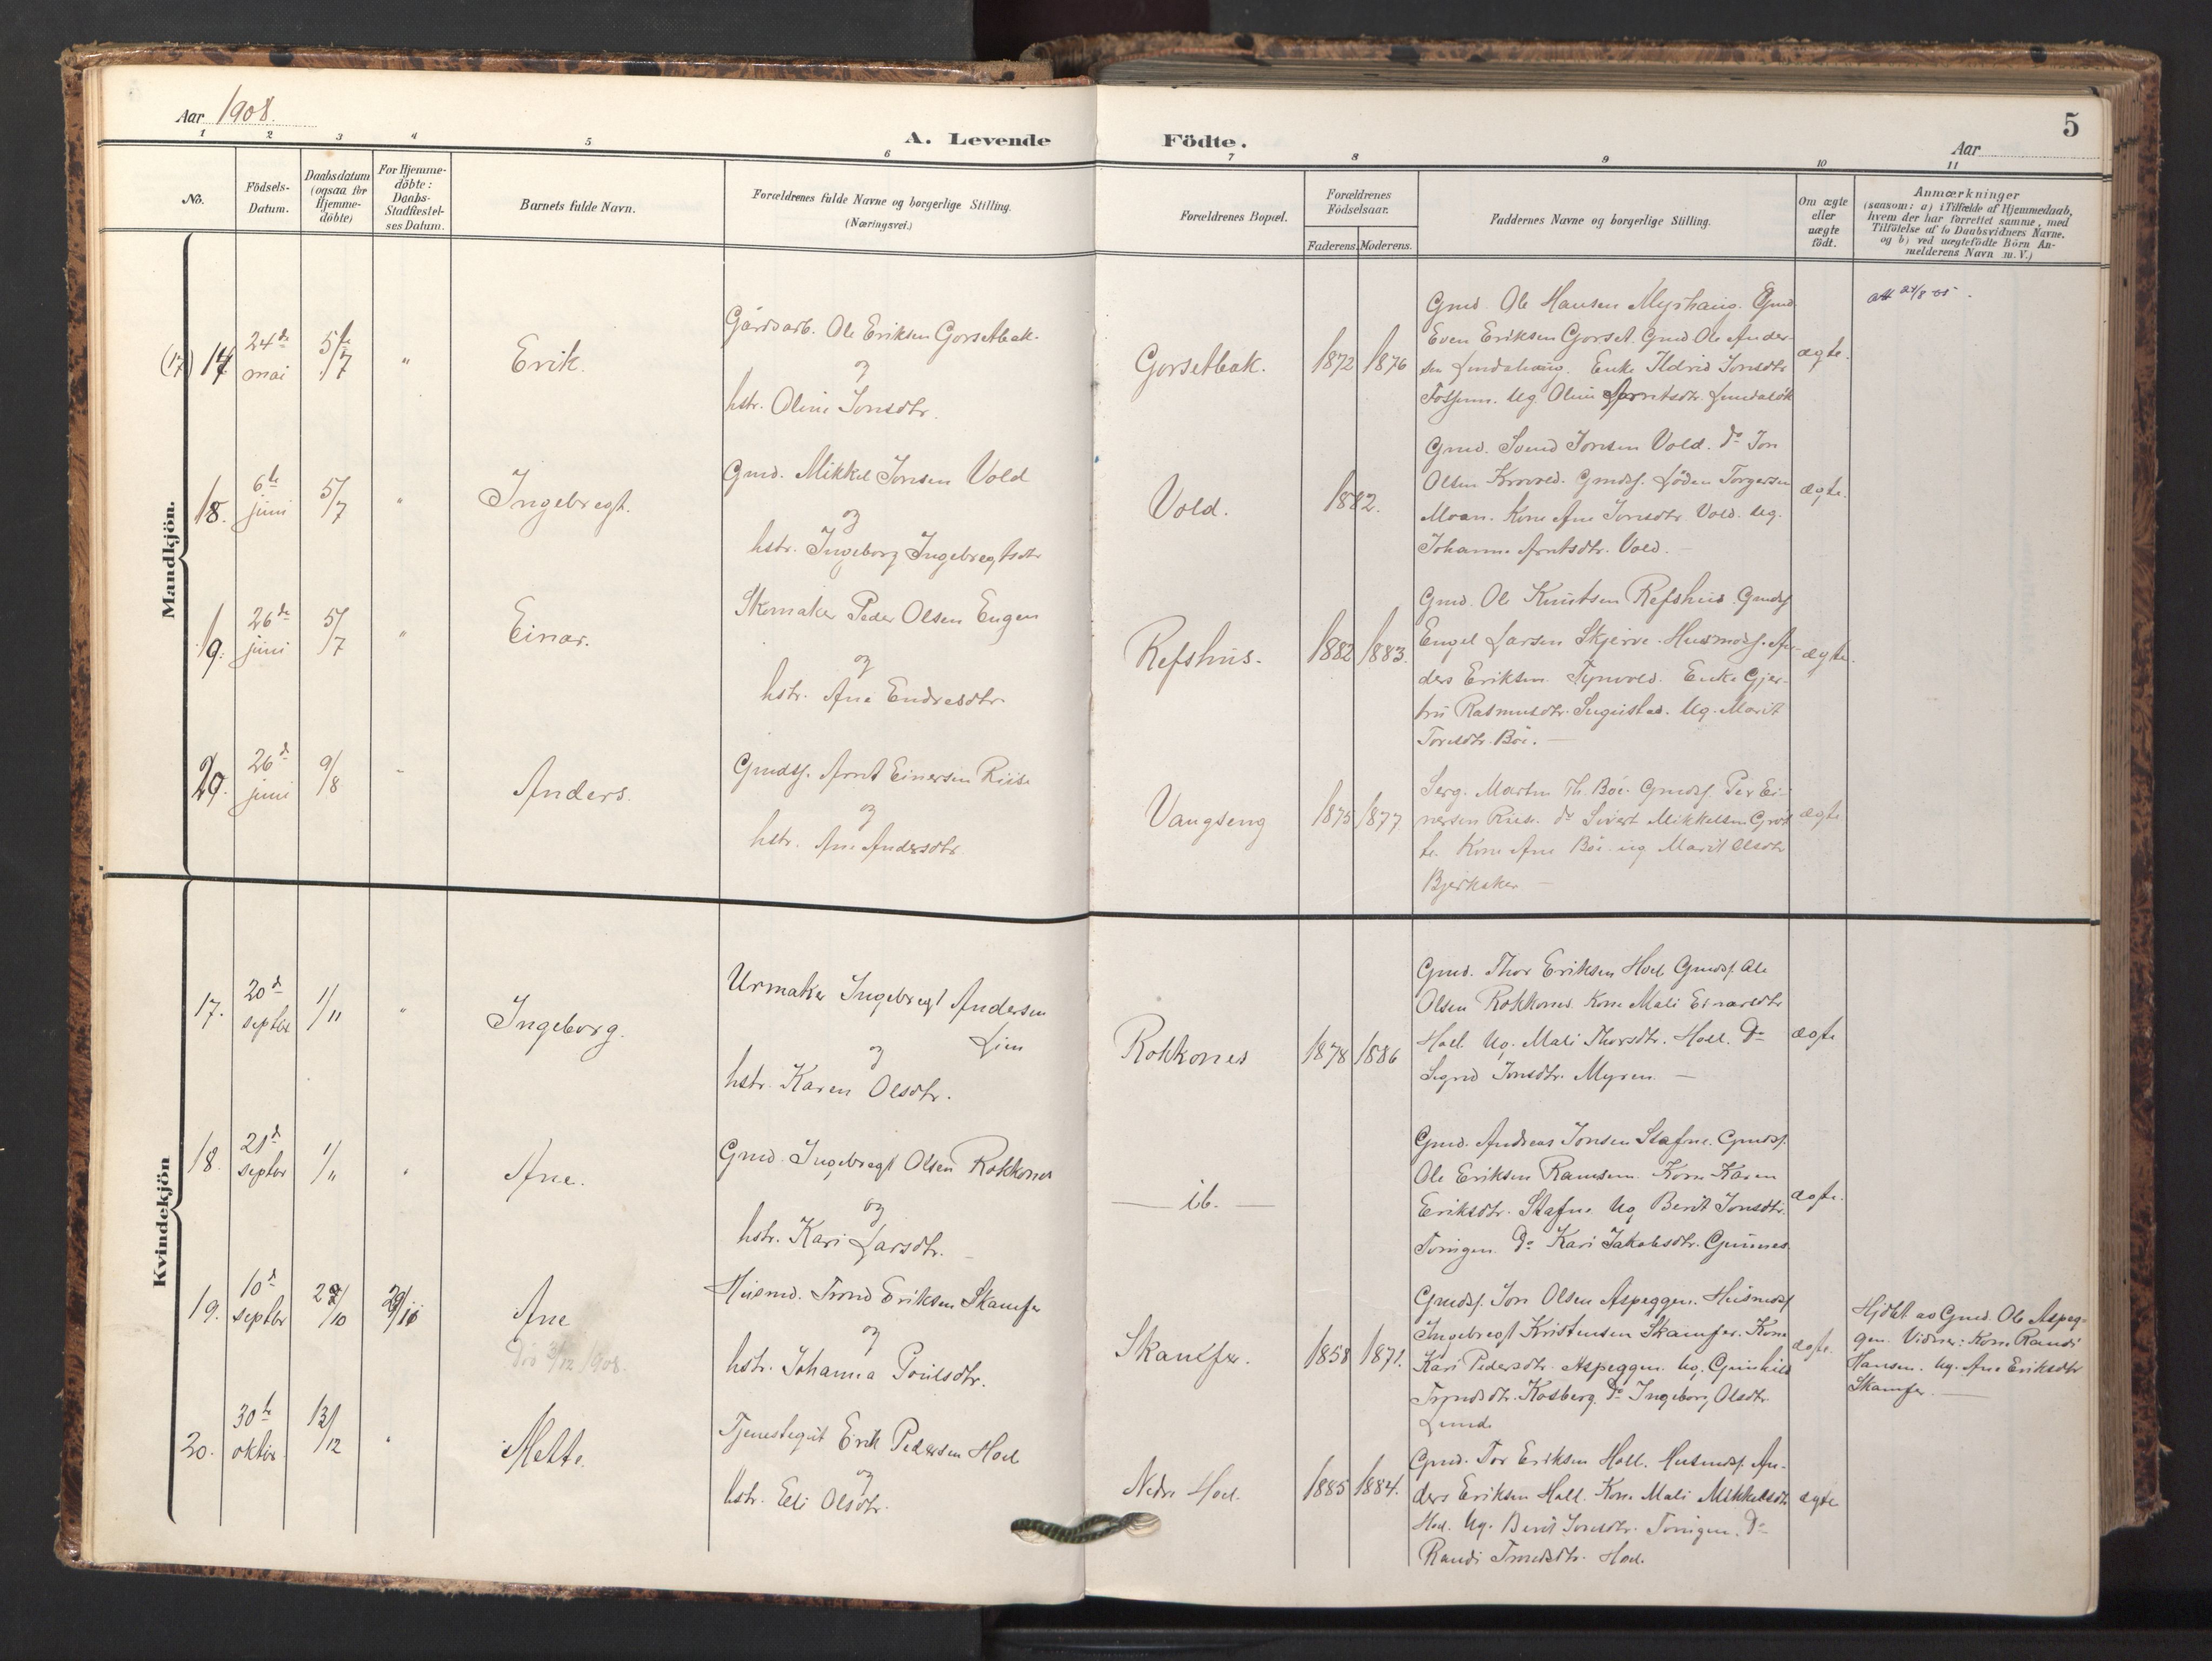 Aar 1908.
A. Levende Födte.
5
Aar
1 2 3 4 5 6 7 8 9 10 11
No.
Födsels-
Datum.
Daabsdatum
(ogsaa for
Hjemme-
döbte)
For Hjemme-
döbte:
Daabs-
Stadfæstel-
ses Datum.
Barnets fulde Navn.
Forældrenes fulde Navne og borgerlige Stilling.
(Næringsvei.)
Forældrenes Bopæl.
Forældrenes
Födselsaar.
Faderens. Moderens.
Faddernes Navne og borgerlige Stilling.
Om ægte
eller
uægte
födt.
Anmærkninger
(saasom: a) i Tilfælde af Hjemmedaab,
hvem der har forrettet samme, med
Tilföielse af to Daabsvidners Navne.
og b) ved uægtefödte Börn An-
melderens Navn m. V.)
Mandkjön.
(17) 17
24de
mai
5/7
"
Erik.
Gårdsarb. Ole Eriksen Gorsetbak.
og
hstr. Oline Jonsdtr.
Gorsetbak.
1872 1876
Gmd. Ole Hansen Myrhaug. Gmd
Even Eriksen Gorset. Gmd Ole Ander-
sen Lundahaug. Enke Ildrid Jonsdtr
Fossum. Ug. Oline Arntsdtr. Lundaløk
ægte.
att 24/8
18.
6te
juni
5/7
"
Ingebregt.
Gmd. Mikkel Jonsen Vold
og
hstr. Ingeborg Ingebregtsdtr
Vold.
1882.
Gmd. Svend Jonsen Vold. do Jon
Olsen Krovold. Gmdsf. Löden Torgersen
Moan. Kone Ane Jonsdtr Vold. Ug.
Johanna Arntsdtr. Vold.
ægte.
19.
26de
juni
5/7
"
Einar.
Skomaker Peder Olsen Engen
og
hstr. Ane Endresdtr.
Refshus.
1882 1883.
Gmd. Ole Knutsen Refshus. Gmdsf
Engel Larsen Skjerve. Husmdsf. An-
ders Eriksen. Tynvold. Enke Gjer-
tru Rasmusdtr. Ingristad. Ug. Marit
Toresdtr. Böe. —
ægte.
20.
26d
juni
9/8
-
Anders.
Gmdsf. Arnt Einersen Riise
og
hstr. Ane Andersdtr.
Vangseng
1875 1877
Serg. Martin Th. Böe. Gmdsf. Per Ei-
nersen Riise. do Sivert Mikkelsen Gröt
te. Kone Ane Böe. ug Marit Olsdtr
Bjerkaker —
ægte
Kvindekjön
17.
20d
septbr
1/11
"
Ingeborg.
Urmaker Ingebregt Andersen
Lien
og
hstr. Karen Olsdtr.
Rokkones
1878 1886
Gmd. Thor Eriksen Hoel. Gmdsf. Ole
Olsen Rokkones. Kone Mali Einarsdtr
Hoel. Ug. Mali Thorsdtr. Hoel. Do
Sigrid Jonsdtr. Myren. —
ægte
18.
21d
septbr
1/11
"
Ane.
Gmd. Ingebregt Olsen Rokkones
og
hstr. Kari Larsdtr.
— ib. —
Gmd. Andreas Jonsen Stafne. Gmdsf.
Ole Eriksen Ramsem. Kone Karen
Eriksdtr. Stafne. Ug Berit Jonsdtr.
Toingen. Do Kari Jakobsdtr. Gunnes
ægte.
19.
10d
septbr
22/10
29/10
Ane
Död 3/12 1908.
Husmd. Trond Eriksen Skamfer
og
hstr. Johanna Poulsdtr.
Skamfer.
1858 1871.
Gmdsf. Jon Olsen Aspeggen. Husmdsf
Ingebregt Kristensen Skamfer. Kone
Kari Pedersdtr. Aspeggen. Ug. Gunhild
Trondsdtr. Kosberg. Do Ingeborg Olsdtr.
Lund.
ægte.
Hjdbt. av Gmd. Ole Aspeg-
gen. Vidner: Kone Randi
Hansen. Ug. Ane Eriksdtr
Skamfer. —
20.
30te
oktbr.
13/12
"
Mette.
Tjenestegut Erik Pedersen Hoel
og
hstr. Eli Olsdtr.
Nedre Hoel.
1885 1884.
Gmd. Tor Eriksen Hoel. Husmdsf. An-
ders Eriksen Hoel. Kone Mali Mikkelsdtr
Hoel. Ug. Berit Jonsdtr. Toingen. Do
Randi Trondsdtr. Hoel.
ægte